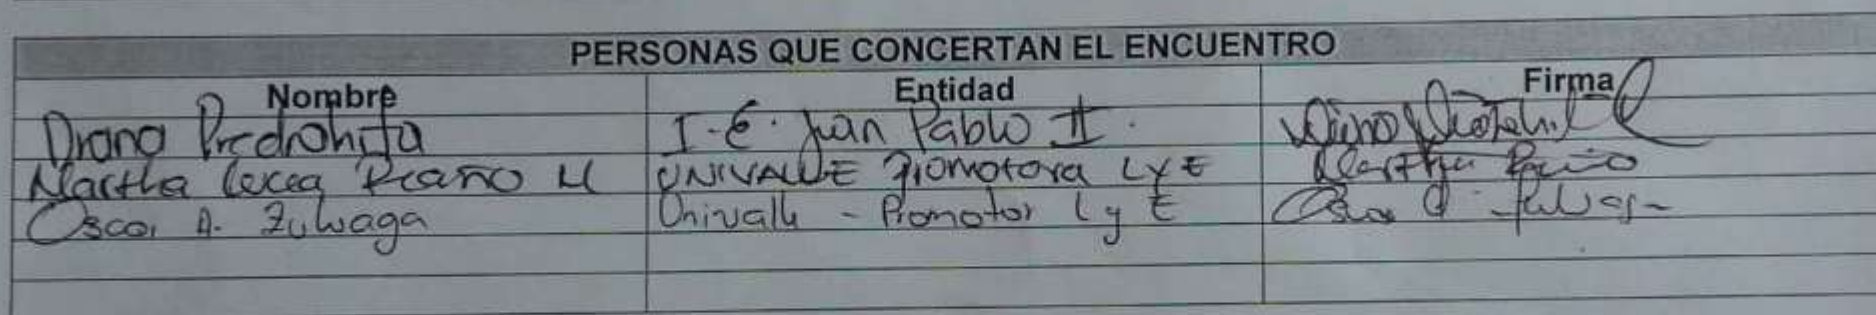 PERSONAS QUE CONCERTAN EL ENCUENTRO
Nombre Entidad Firma
Diana Piedrahita I.E. Juan Pablo II.
Martha Lucia Riaño M UNIVALLE Promotora LYE Martha Riaño
Oscar A. Zuluaga Univalle - Promotor LyE Oscar A. Zuluaga